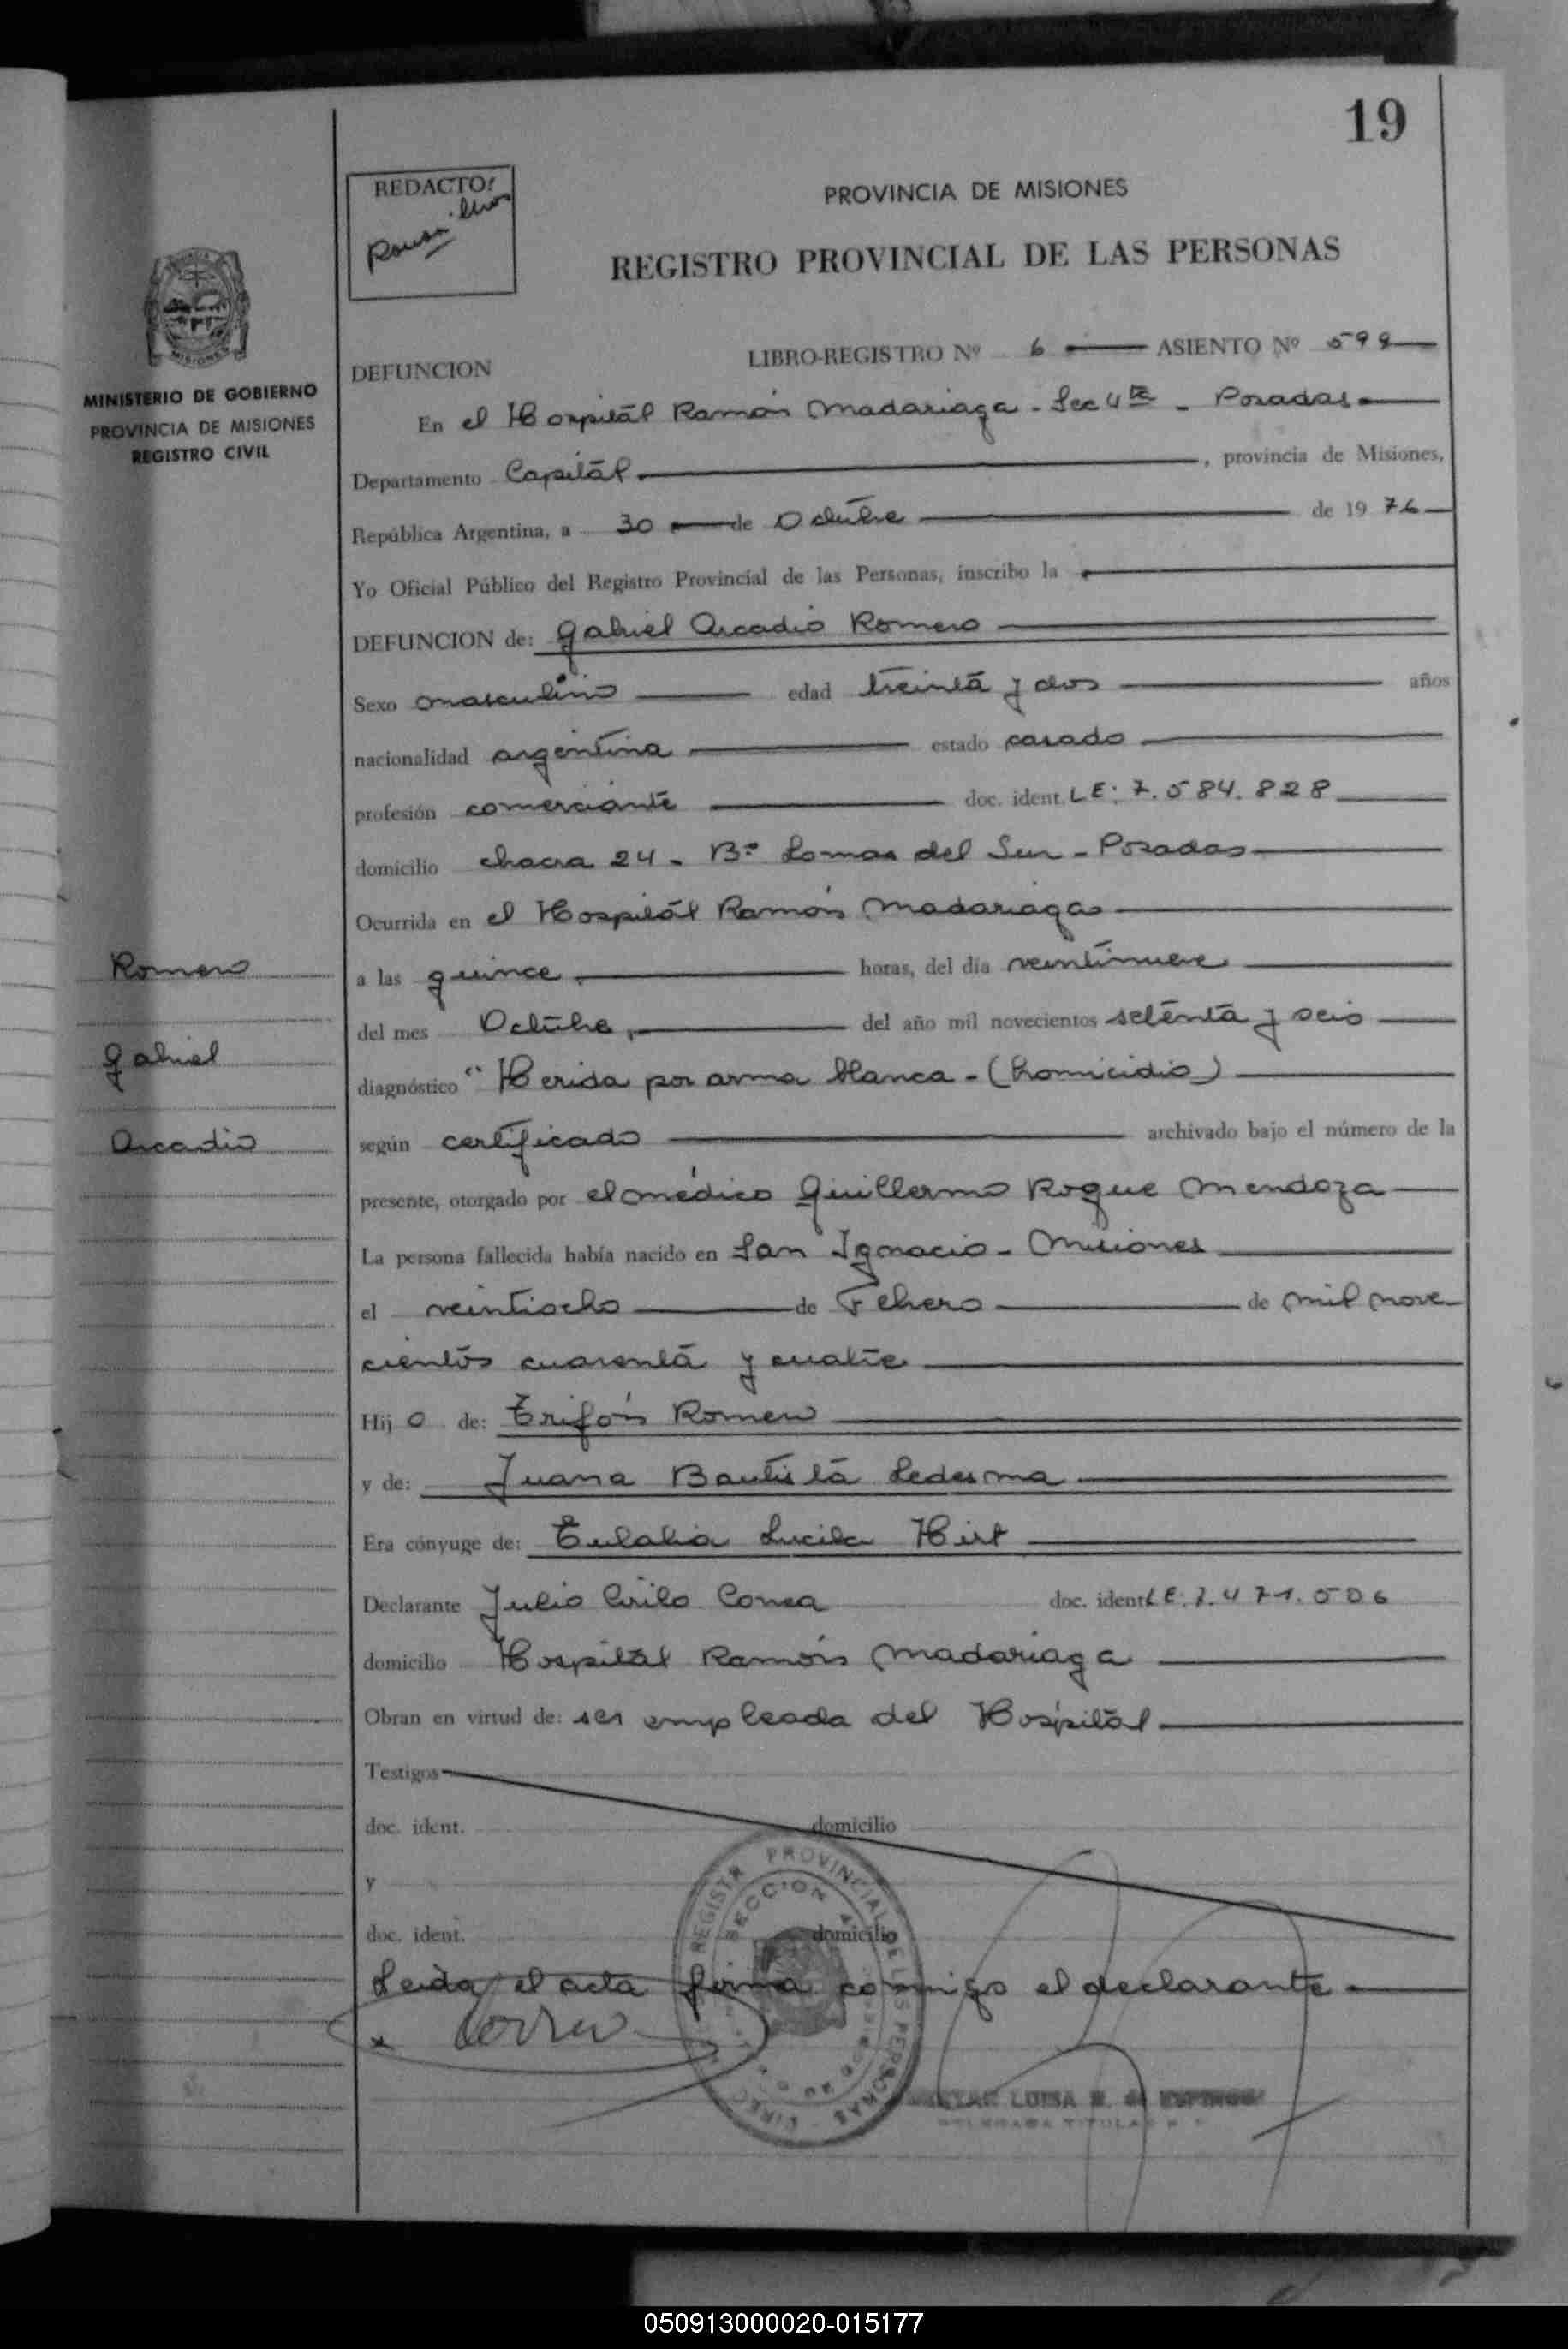 19
REDACTO:
PROVINCIA DE MISIONES
REGISTRO PROVINCIAL DE LAS PERSONAS
MISIONES
MINISTERIO DE GOBIERNO
PROVINCIA DE MISIONES
REGISTRO CIVIL
DEFUNCION LIBRO-REGISTRO Nº 6 ASIENTO Nº 599
En el Hospital Ramón Madariaga - Sec 4ta - Posadas
Departamento Capital, provincia de Misiones,
República Argentina, a 30 de Octubre de 1976
Yo Oficial Público del Registro Provincial de las Personas, inscribo la
DEFUNCION de: Gabriel Arcadio Romero
Sexo masculino edad treinta y dos años
nacionalidad argentina estado casado
profesión comerciante doc. ident. LE: 7.584.828
domicilio chacra 24 - Bº Lomas del Sur - Posadas
Ocurrida en el Hospital Ramón Madariaga
a las quince horas, del día veintinueve
del mes Octubre, del año mil novecientos setenta y seis
diagnóstico " Herida por arma blanca - (homicidio)
según certificado archivado bajo el número de la
presente, otorgado por el médico Guillermo Roque Mendoza
La persona fallecida había nacido en San Ignacio - Misiones
el veintiocho de Febrero de mil nove
cientos cuarenta y cuatro
Hijo de: Trifón Romero
y de: Juana Bautista Ledesma
Era cónyuge de: Eulalia Lucila Hirt
Declarante Julio Cirilo Correa doc. ident LE: 7.471.506
domicilio Hospital Ramón Madariaga
Obran en virtud de: ser empleada del Hospital
Testigos
doc. ident. domicilio
y
doc. ident. domicilio
Leída el acta firma conmigo el declarante
Romero
Gabriel
Arcadio
REGISTR PROVINCIAL DE LAS PERSONAS
SECCION
LUISA
TITULAR
050913000020-015177